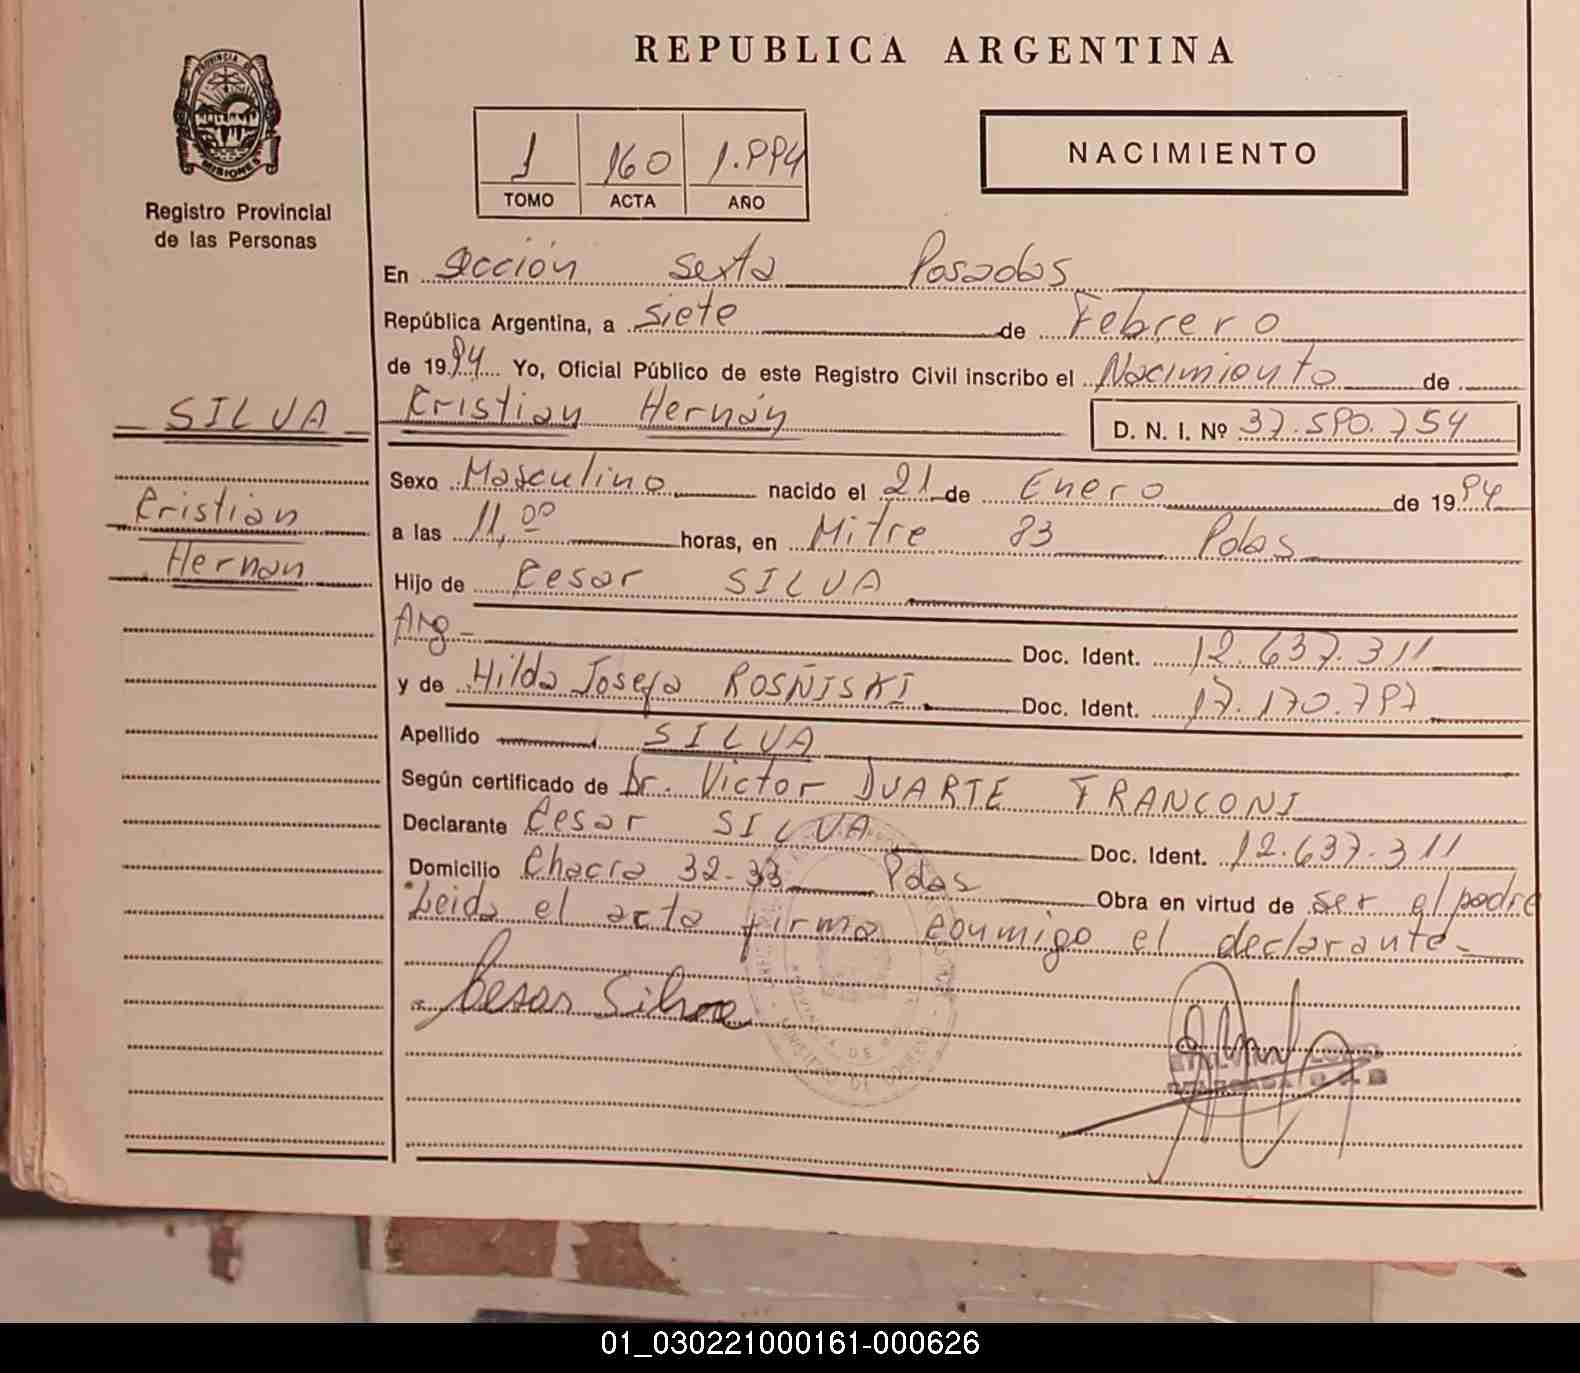 REPUBLICA ARGENTINA
PROVINCIA DE
MISIONES
Registro Provincial
de las Personas
1 160 1.994
TOMO ACTA AÑO
NACIMIENTO
En Sección Sexta Posadas
República Argentina, a siete de Febrero
de 1994 Yo, Oficial Público de este Registro Civil inscribo el Nacimiento de
SILVA
Cristian Hernán D. N. I. Nº 37.590.754
Cristian
Hernan
Sexo Masculino nacido el 21 de Enero de 1994
a las 11,00 horas, en Mitre 83 Pdas
Hijo de Cesar SILVA
Arg- Doc. Ident. 12.637.311
y de Hilda Josefa ROSÑISKI Doc. Ident. 17.170.797
Apellido SILVA
Según certificado de Dr. Victor DUARTE FRANCONI
Declarante Cesar SILVA Doc. Ident. 12.637.311
Domicilio Chacra 32-33 Pdas Obra en virtud de ser el padre
Leida el acta firma conmigo el declarante-
Cesar Silva
01_030221000161-000626